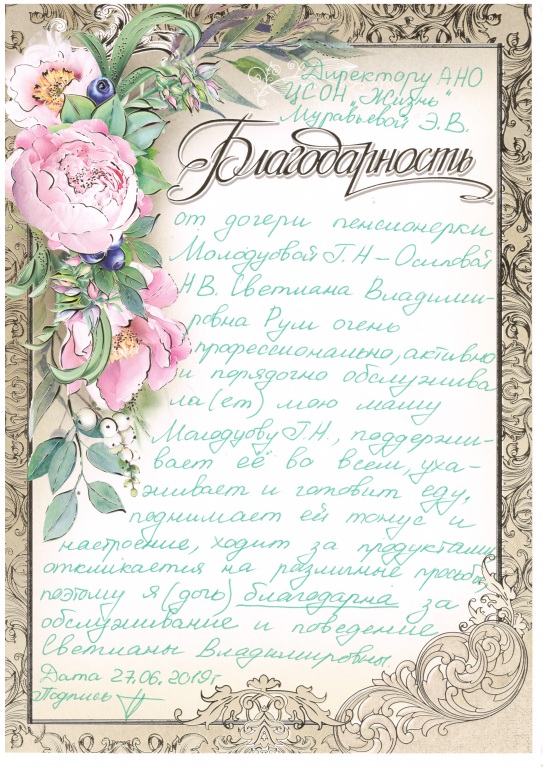 Директору АНО
ЦСОН "Жизнь"
Муравьевой Э.В.
Благодарность
от дочери пенсионерки
Молодуовой Г.Н – Осиповой
Н В. Светлана Владими-
ровна Рум очень
профессионально, активно
и порядочно обслужива
ла(ет) мою маму
Молодуову Г.Н., поддержи-
вает её во всем, уха-
живает и готовит еду,
поднимает ей тонус и
настроение, ходит за продуктами
откликается на различные просьбы,
поэтому я (дочь) благодарна за
обслуживание и поведение
Светланы Владимировны.
Дата 27.06.2019г
Подпись